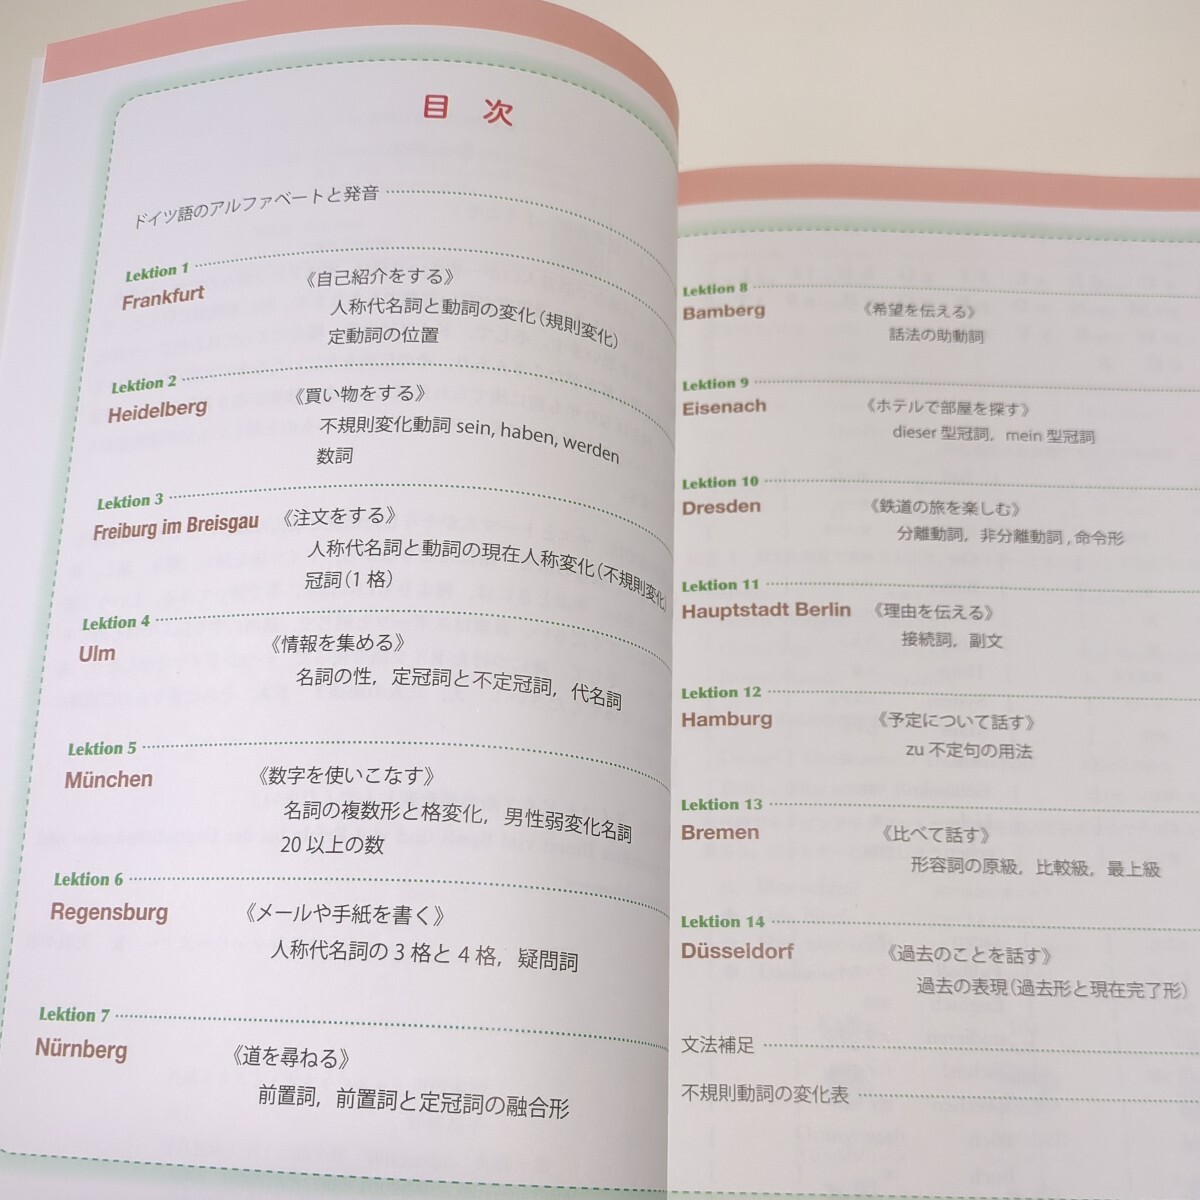 目 次
ドイツ語のアルファベートと発音
Lektion 1
Frankfurt 《自己紹介をする》
人称代名詞と動詞の変化(規則変化)
定動詞の位置
Lektion 2
Heidelberg 《買い物をする》
不規則変化動詞 sein, haben, werden
数詞
Lektion 3
Freiburg im Breisgau 《注文をする》
人称代名詞と動詞の現在人称変化(不規則変化)
冠詞(1格)
Lektion 4
Ulm 《情報を集める》
名詞の性, 定冠詞と不定冠詞, 代名詞
Lektion 5
München 《数字を使いこなす》
名詞の複数形と格変化, 男性弱変化名詞
20以上の数
Lektion 6
Regensburg 《メールや手紙を書く》
人称代名詞の3格と4格, 疑問詞
Lektion 7
Nürnberg 《道を尋ねる》
前置詞, 前置詞と定冠詞の融合形
Lektion 8
Bamberg 《希望を伝える》
話法の助動詞
Lektion 9
Eisenach 《ホテルで部屋を探す》
dieser 型冠詞, mein 型冠詞
Lektion 10
Dresden 《鉄道の旅を楽しむ》
分離動詞, 非分離動詞, 命令形
Lektion 11
Hauptstadt Berlin 《理由を伝える》
接続詞, 副文
Lektion 12
Hamburg 《予定について話す》
zu 不定句の用法
Lektion 13
Bremen 《比べて話す》
形容詞の原級, 比較級, 最上級
Lektion 14
Düsseldorf 《過去のことを話す》
過去の表現(過去形と現在完了形)
文法補足
不規則動詞の変化表